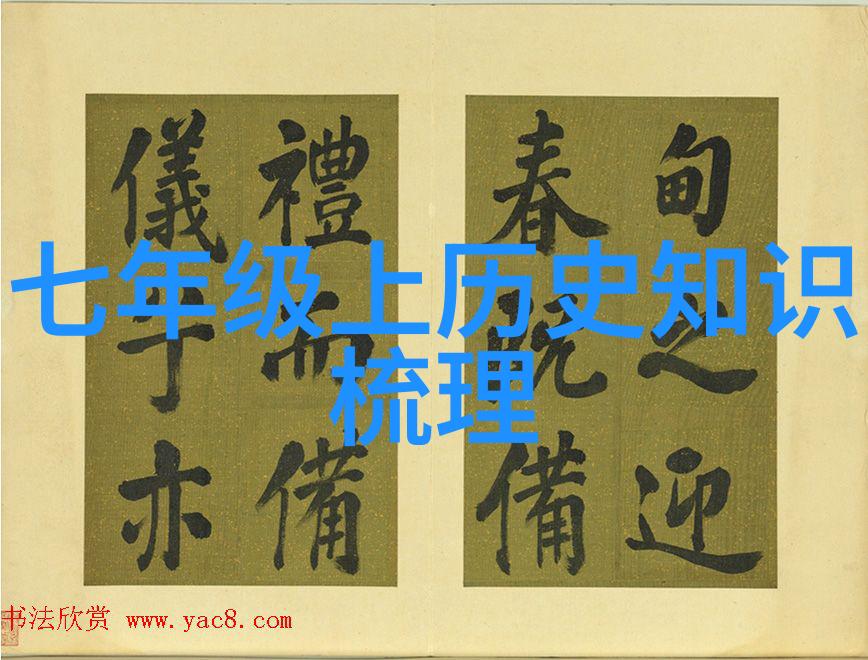 七年级上历史知识
梳理
甸之迎
春既備
禮而備
儀于亦
书法欣赏 www.yac8.com